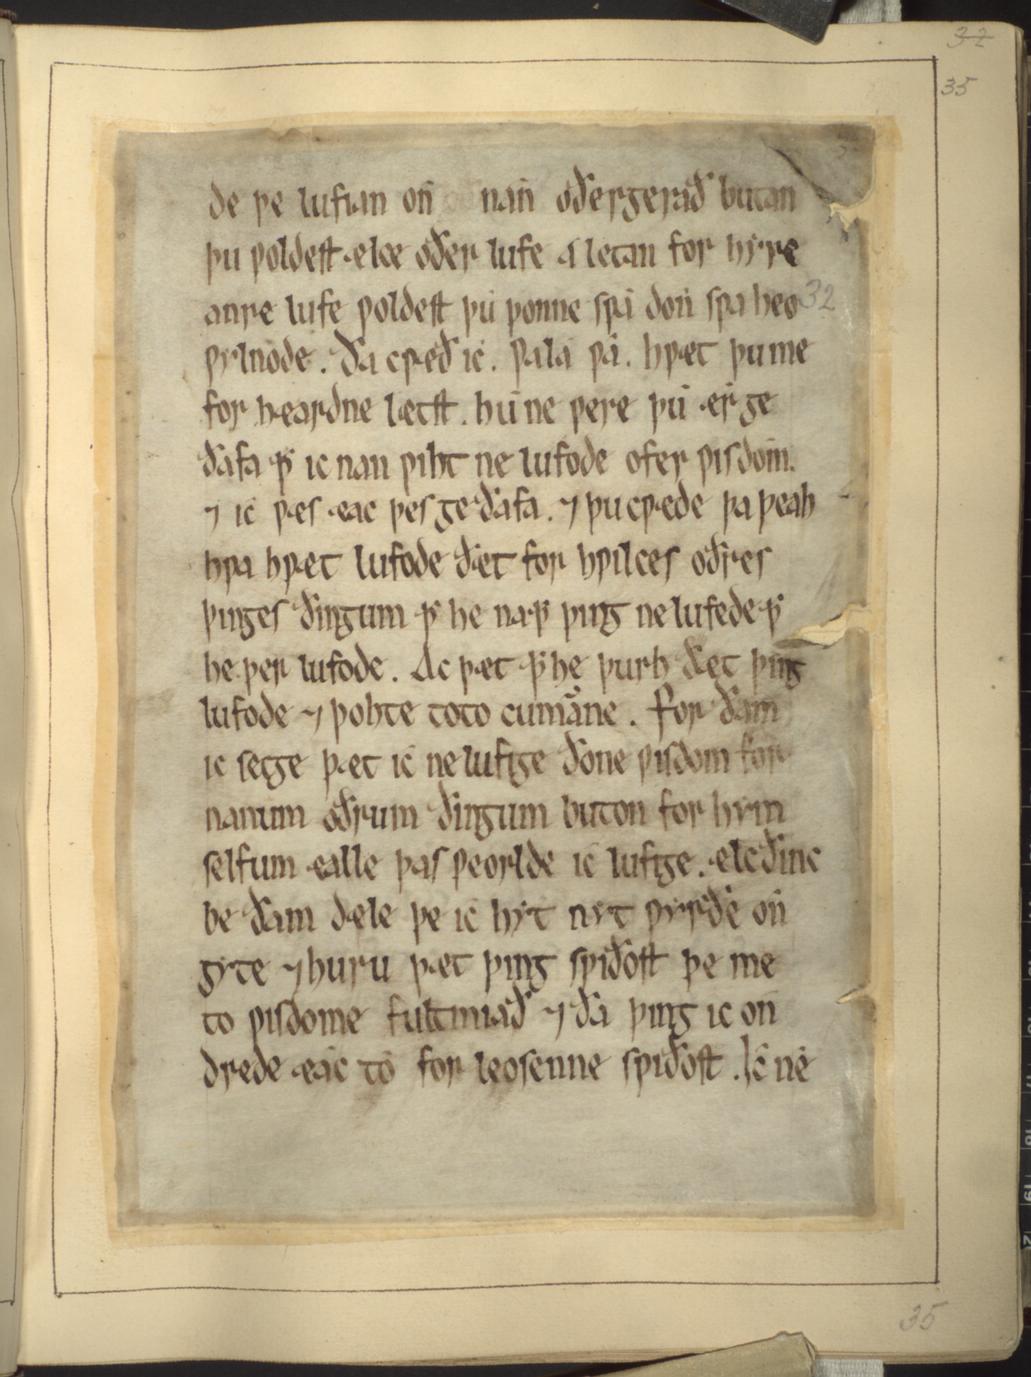 32
35
de ƿe lufian on nan oðergerað butan
þu ƿoldest ælce oðer lufe a letan for hyre
anre lufe ƿoldest þu þonne sƿa don sƿa heo
32
ƿylnode. Ða cƿæð ic. ƿala ƿa. hƿæt þu me
for heardne lætst. hu ne ƿere þu ær ge
ðafa ꝥ ic nan ƿiht ne lufode ofer ƿisdom.
⁊ ic ƿæs æac þes geðafa. ⁊ þu cƿæde þa þeah
hƿa hƿæt lufode ðæt for hƿilces oðres
þinges ðingum ꝥ he na ꝥ þing ne lufede ꝥ
he þer lufode. Ac þæt ꝥ he þurh ðæt þing
lufode ⁊ þohte toto cumane. For ðam
ic secge þæt ic ne lufige ðone ƿisdom for
nanum oðrum ðingum buton for hym
selfum ealle þas ƿeorlde ic lufige. ælc ðinc
be ðam dæle þe ic hyt nyt ƿyrðe on
gyte ⁊ huru þæt þing sƿiðost þe me
to ƿisdome fultmiað ⁊ ða þing ic on
drede eac to for leosenne sƿiðost. Ic ne
35